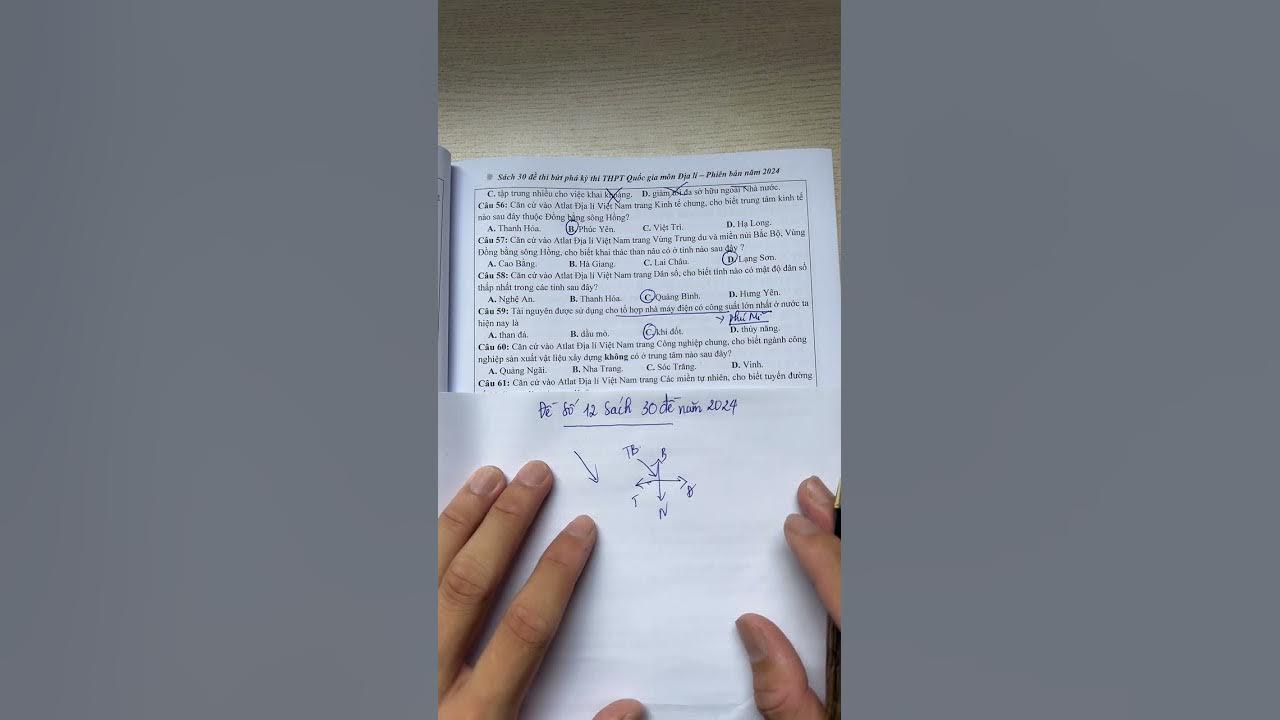 Sách 30 đề thi bứt phá kỳ thi THPT Quốc gia môn Địa lí – Phiên bản năm 2024
C. tập trung nhiều cho việc khai khoáng. D. giảm tối đa sở hữu ngoài Nhà nước.
Câu 56: Căn cứ vào Atlat Địa lí Việt Nam trang Kinh tế chung, cho biết trung tâm kinh tế
nào sau đây thuộc Đồng bằng sông Hồng?
A. Thanh Hóa. B. Phúc Yên. C. Việt Trì. D. Hạ Long.
Câu 57: Căn cứ vào Atlat Địa lí Việt Nam trang Vùng Trung du và miền núi Bắc Bộ, Vùng
Đồng bằng sông Hồng, cho biết khai thác than nâu có ở tỉnh nào sau đây ?
A. Cao Bằng. B. Hà Giang. C. Lai Châu. D. Lạng Sơn.
Câu 58: Căn cứ vào Atlat Địa lí Việt Nam trang Dân số, cho biết tỉnh nào có mật độ dân số
thấp nhất trong các tỉnh sau đây?
A. Nghệ An. B. Thanh Hóa. C. Quảng Bình. D. Hưng Yên.
Câu 59: Tài nguyên được sử dụng cho tổ hợp nhà máy điện có công suất lớn nhất ở nước ta
hiện nay là
phú Mĩ
A. than đá. B. dầu mỏ. C. khí đốt. D. thủy năng.
Câu 60: Căn cứ vào Atlat Địa lí Việt Nam trang Công nghiệp chung, cho biết ngành công
nghiệp sản xuất vật liệu xây dựng không có ở trung tâm nào sau đây?
A. Quảng Ngãi. B. Nha Trang. C. Sóc Trăng. D. Vinh.
Câu 61: Căn cứ vào Atlat Địa lí Việt Nam trang Các miền tự nhiên, cho biết tuyến đường
Đề số 12 Sách 30 đề năm 2024
TB B
T Đ
N